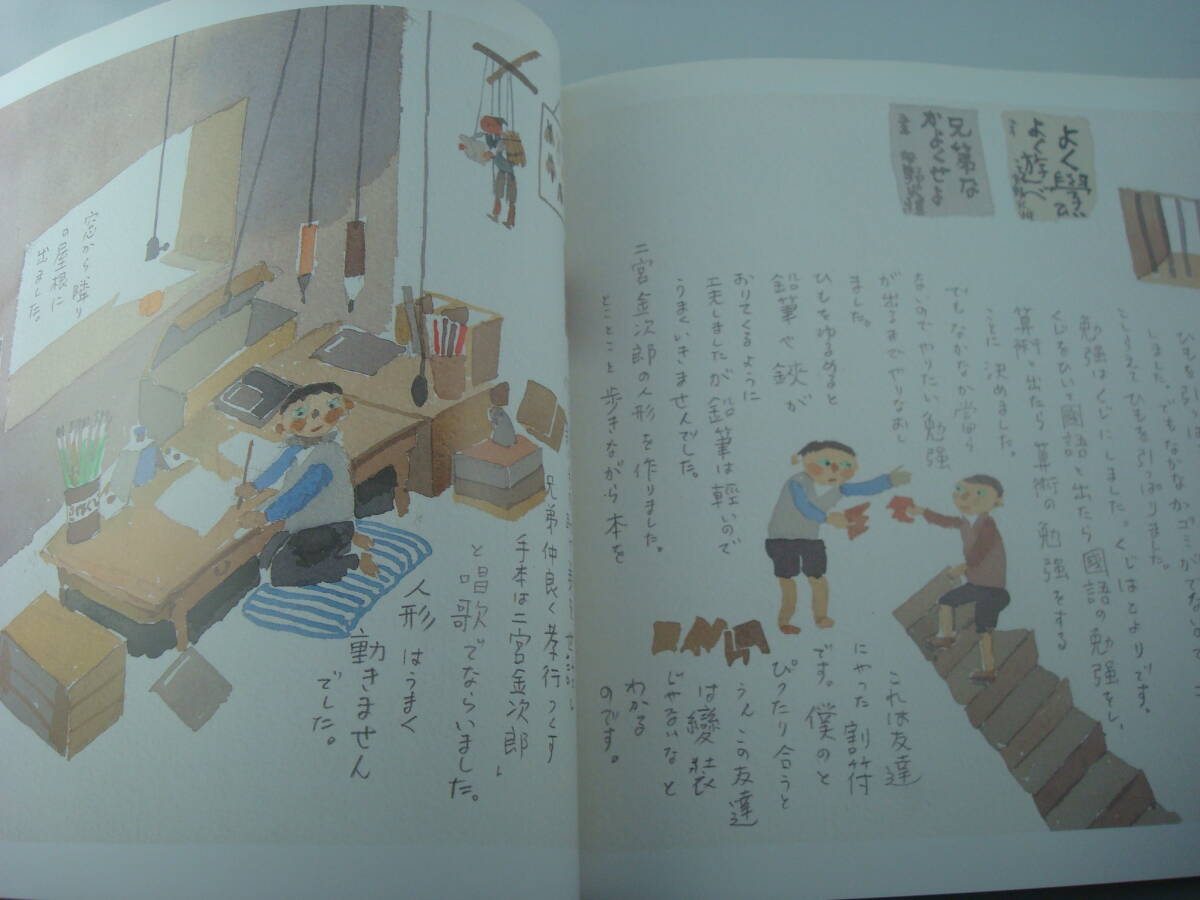 よく學び
よく遊べ
兄弟な
かよくせよ
しました。でもなかなかゴミがでないで
こしらえてひもを引っぱりました。
勉強はくじにしました。くじはこよりです。
くじをひいて國語と出たら國語の勉強をし、
算術と出たら算術の勉強をする
ことに決めました。
でもなかなか當ら
ないのでやりたい勉強
が出るまでやりなおし
ました。
ひもをゆるめると
鉛筆や鋏が
おりてくるように
工夫しましたが鉛筆は輕いので
うまくいきませんでした。
二宮金次郎の人形を作りました。
とことこと歩きながら本を
これは友達
にやった割符
です。僕のと
ぴったり合うと
うんこの友達
は變装
じゃないなと
わかる
のです。
兄弟仲良く孝行つくす
手本は二宮金次郎」
と唱歌でならいました。
人形はうまく
動きません
でした。
窓から隣り
の屋根に
出ました。